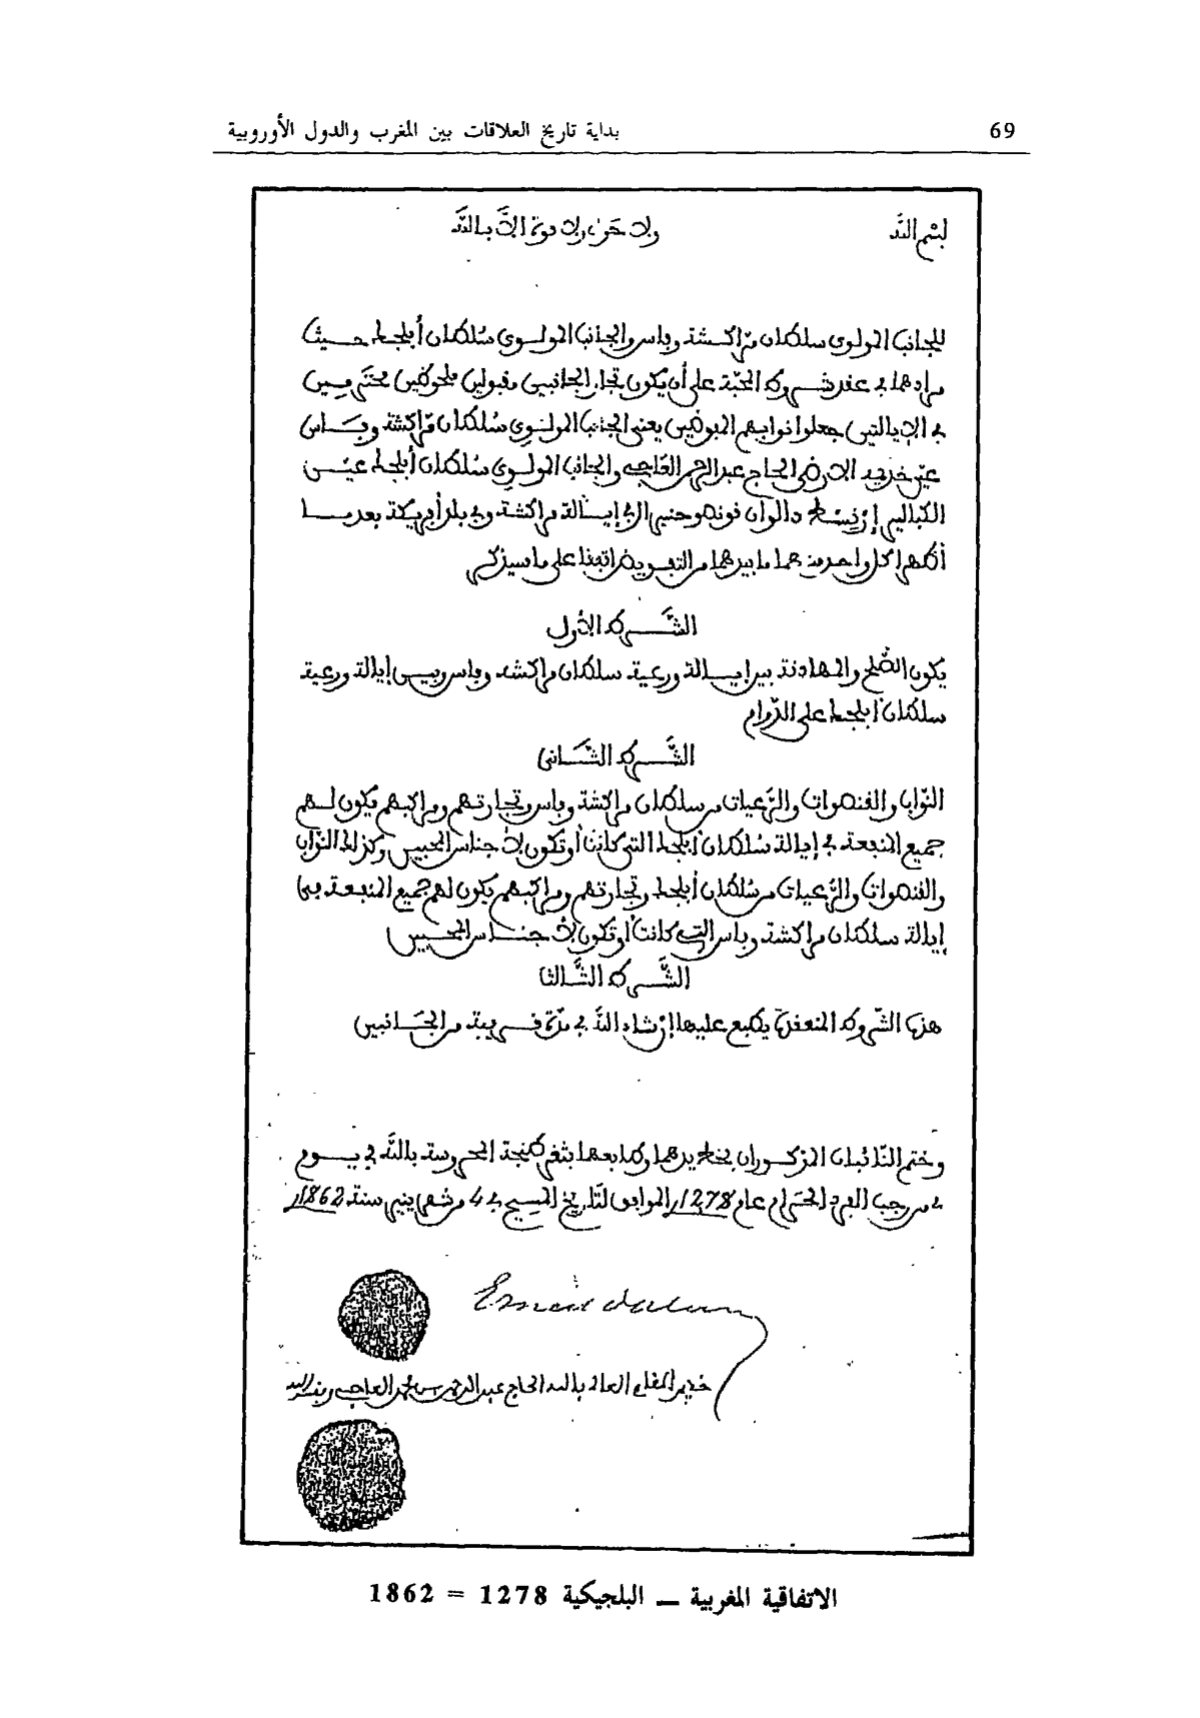 69
بداية تاريخ العلاقات بين المغرب والدول الأوروبية
بسم الله
ولا حول ولا قوة إلا بالله
الجانب المولوي سلطان مراكشة وفاس والجانب المولوي سلطان أبلجك حيث
مرادهما في عقد شروط المحبة على أن يكون تجار الجانبين مقبولين ملحوظين محترمين
في الإيالتين جعلوا نوابهم المفوضين يعني الجانب المولوي سلطان مراكشة وفاس
عين خديمه الأرضى الحاج عبد الرحمن العاجي والجانب المولوي سلطان أبلجك عين
الكبالير إرنست دالوان قونصو جنرال في إيالة مراكشة وفي بلر أبريكة بعدما
أظهرا كل واحد منهما ما بيدهما من التفويض اتفقنا على ما سيذكر
الشرط الأول
يكون الصلح والمهادنة بين إيالة ورعية سلطان مراكشة وفاس وبين إيالة ورعية
سلطان أبلجك على الدوام
الشرط الثاني
النواب والقنصوات والرعيات من سلطان مراكشة وفاس وتجارتهم ومراكبهم يكون لهم
جميع المنفعة في إيالة سلطان أبلجك التي كانت أو تكون لأجناس المحبين وكذلك النواب
والقنصوات والرعيات من سلطان أبلجك وتجارتهم ومراكبهم يكون لهم جميع المنفعة في
إيالة سلطان مراكشة وفاس التي كانت أو تكون لأجناس المحبين
الشرط الثالث
هذه الشروط المنعقدة يطبع عليها إن شاء الله في مدة قريبة من الجانبين
وختم النائبان المذكوران بخط يدهما وطابعهما بثغر طنجة المحروسة بالله في يوم
من رجب الفرد الحرام عام 1278 الموافق لتاريخ المسيح في 4 من شهر ينير سنة 1862
خديم المقام العالي بالله الحاج عبد الرحمن بن محمد العاجي وفقه الله
الاتفاقية المغربية — البلجيكية 1278 = 1862